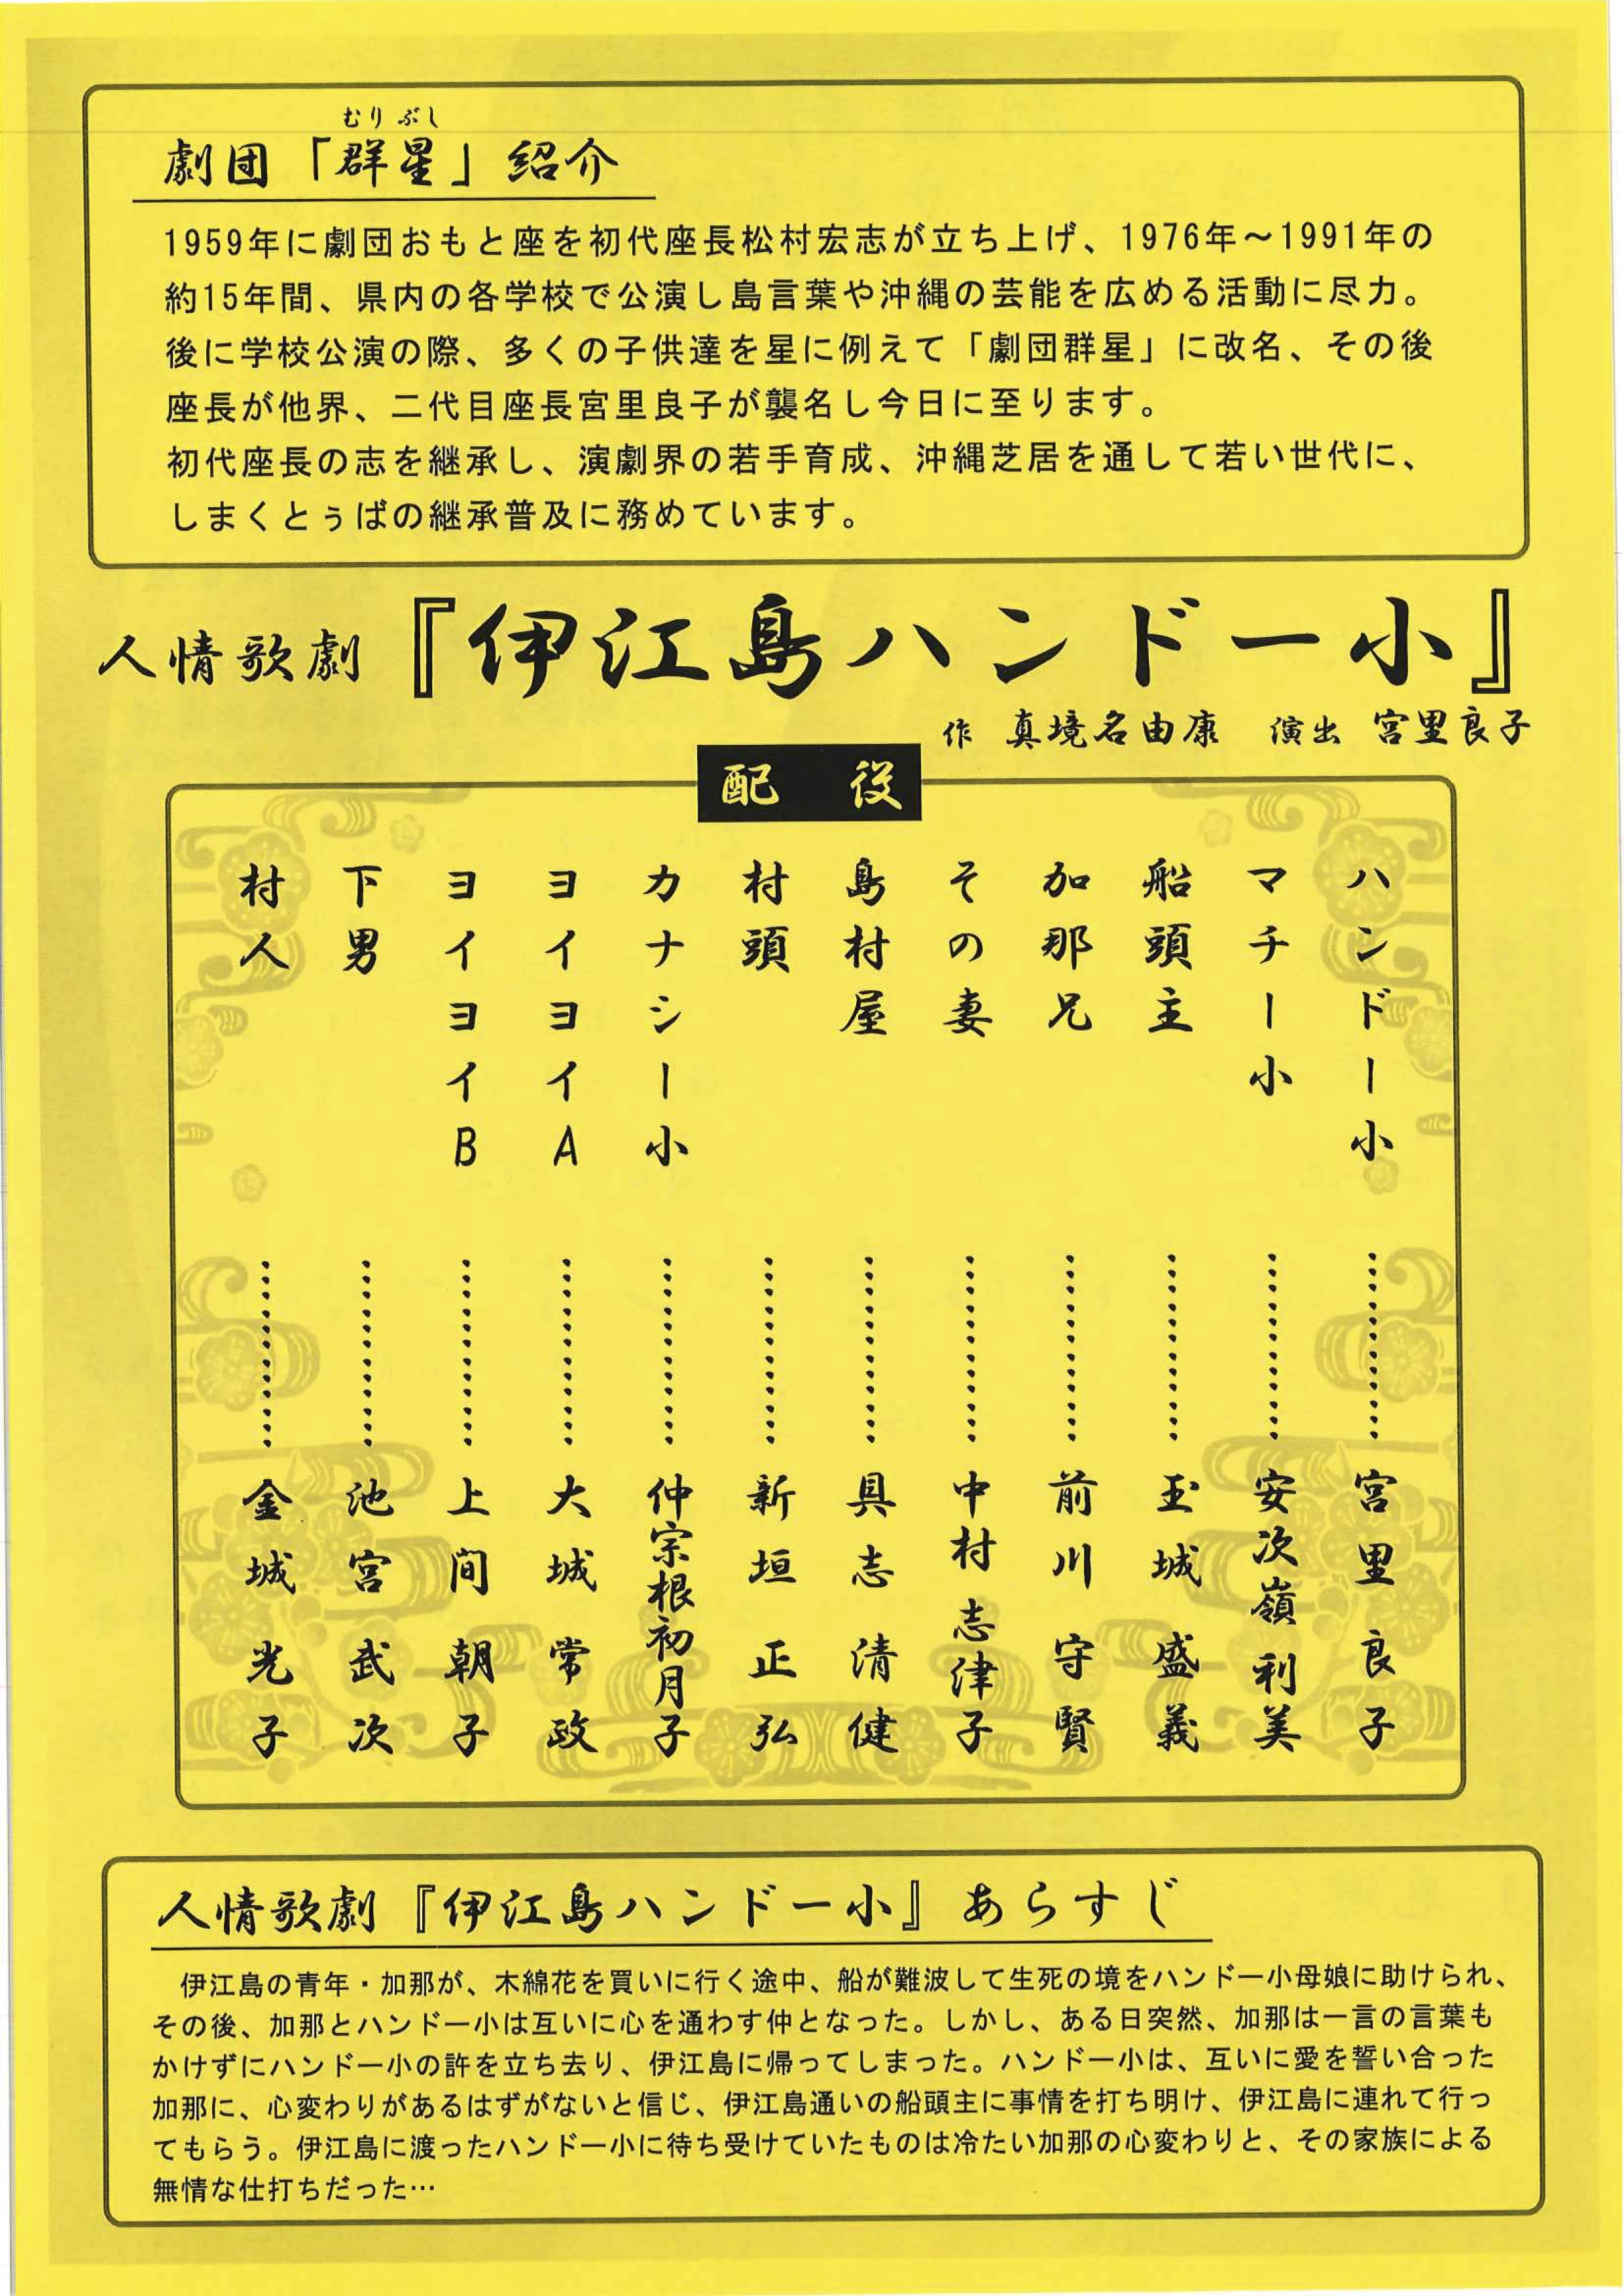 むりぶし
劇団「群星」紹介
1959年に劇団おもと座を初代座長松村宏志が立ち上げ、1976年～1991年の
約15年間、県内の各学校で公演し島言葉や沖縄の芸能を広める活動に尽力。
後に学校公演の際、多くの子供達を星に例えて「劇団群星」に改名、その後
座長が他界、二代目座長宮里良子が襲名し今日に至ります。
初代座長の志を継承し、演劇界の若手育成、沖縄芝居を通して若い世代に、
しまくとぅばの継承普及に務めています。
人情歌劇『伊江島ハンドー小』
作 真境名由康 演出 宮里良子
配役
ハンドー小…………宮里良子
マチー小…………安次嶺利美
船頭主…………玉城盛義
加那兄…………前川守賢
その妻…………中村志津子
島村屋…………具志清健
村頭…………新垣正弘
カナシー小…………仲宗根初月子
ヨイヨイA…………大城常政
ヨイヨイB…………上間朝子
下男…………池宮武次
村人…………金城光子
人情歌劇『伊江島ハンドー小』あらすじ
伊江島の青年・加那が、木綿花を買いに行く途中、船が難波して生死の境をハンドー小母娘に助けられ、
その後、加那とハンドー小は互いに心を通わす仲となった。しかし、ある日突然、加那は一言の言葉も
かけずにハンドー小の許を立ち去り、伊江島に帰ってしまった。ハンドー小は、互いに愛を誓い合った
加那に、心変わりがあるはずがないと信じ、伊江島通いの船頭主に事情を打ち明け、伊江島に連れて行っ
てもらう。伊江島に渡ったハンドー小に待ち受けていたものは冷たい加那の心変わりと、その家族による
無情な仕打ちだった…